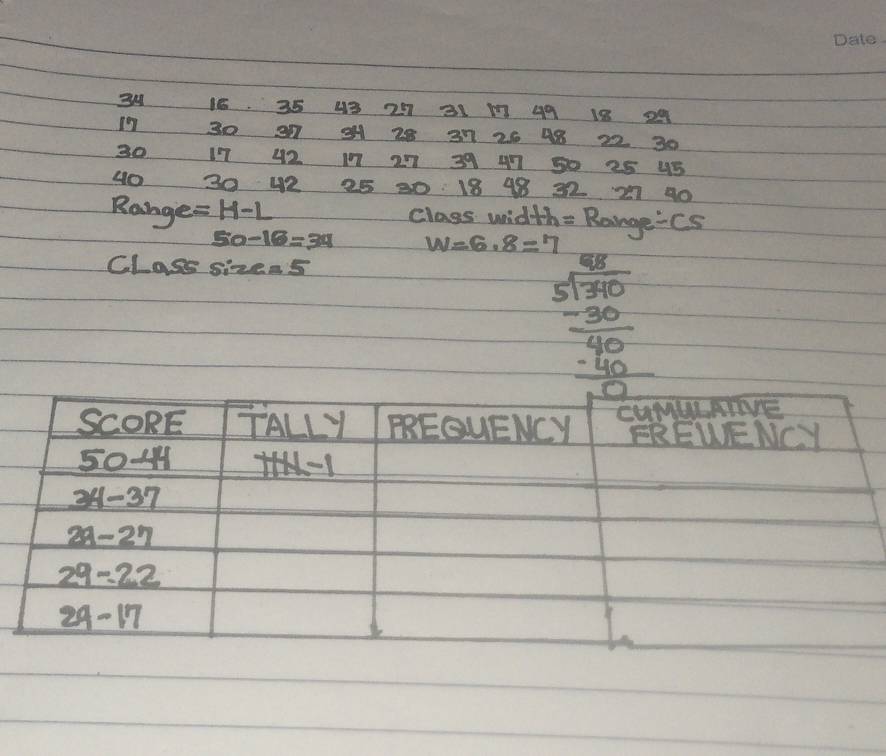 Date
34 16 35 43 27 31 17 49 18 29
17 30 37 34 28 37 26 48 22 30
30 17 42 17 27 39 47 50 25 45
40 30 42 25 30 18 48 32 27 40
Range = H-L Class width = Range ÷ CS
50-16=34 W=6.8=7
CLass size = 5
68
5 340
-30
40
-40
0
SCORE TALLY FREQUENCY CUMULATIVE FREWENCY
50-44 1111-1
34-37
29-27
29-22
29-17